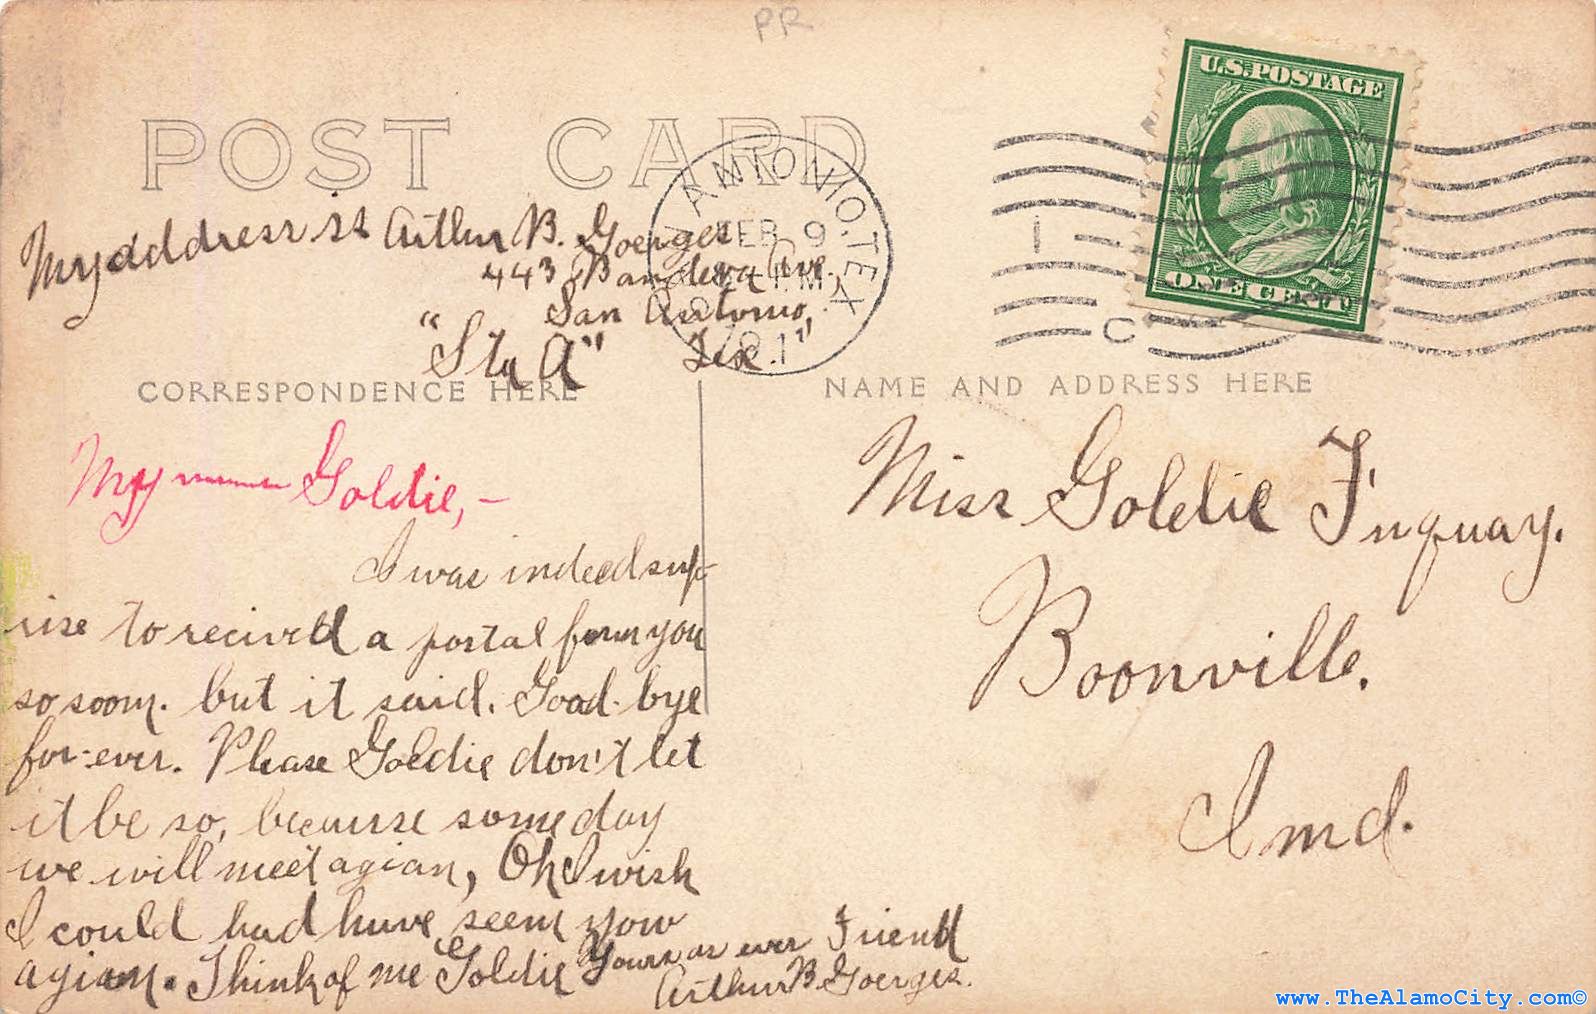 PR
POST CARD
U.S. POSTAGE
ONE CENT
ANTONIO, TEX
FEB 9
PM
1911
1
C
My address is Arthur B. Goerges
443 Bandera Ave.,
San Antonio,
"Sta A" Tex."
CORRESPONDENCE HERE
NAME AND ADDRESS HERE
My Goldie,-
I was indeed sup-
rise to recived a postal form you
so soom. but it said. Good-bye
for-ever. Please Goldie don't let
it be so, because some day
we will meet agian, Oh I wish
I could had have seem yow
agiam. Think of me Goldie
Yours as ever Friend
Arthur B. Goerges.
Miss Goldie Fuquay.
Boonville.
Ind.
www.TheAlamoCity.com©